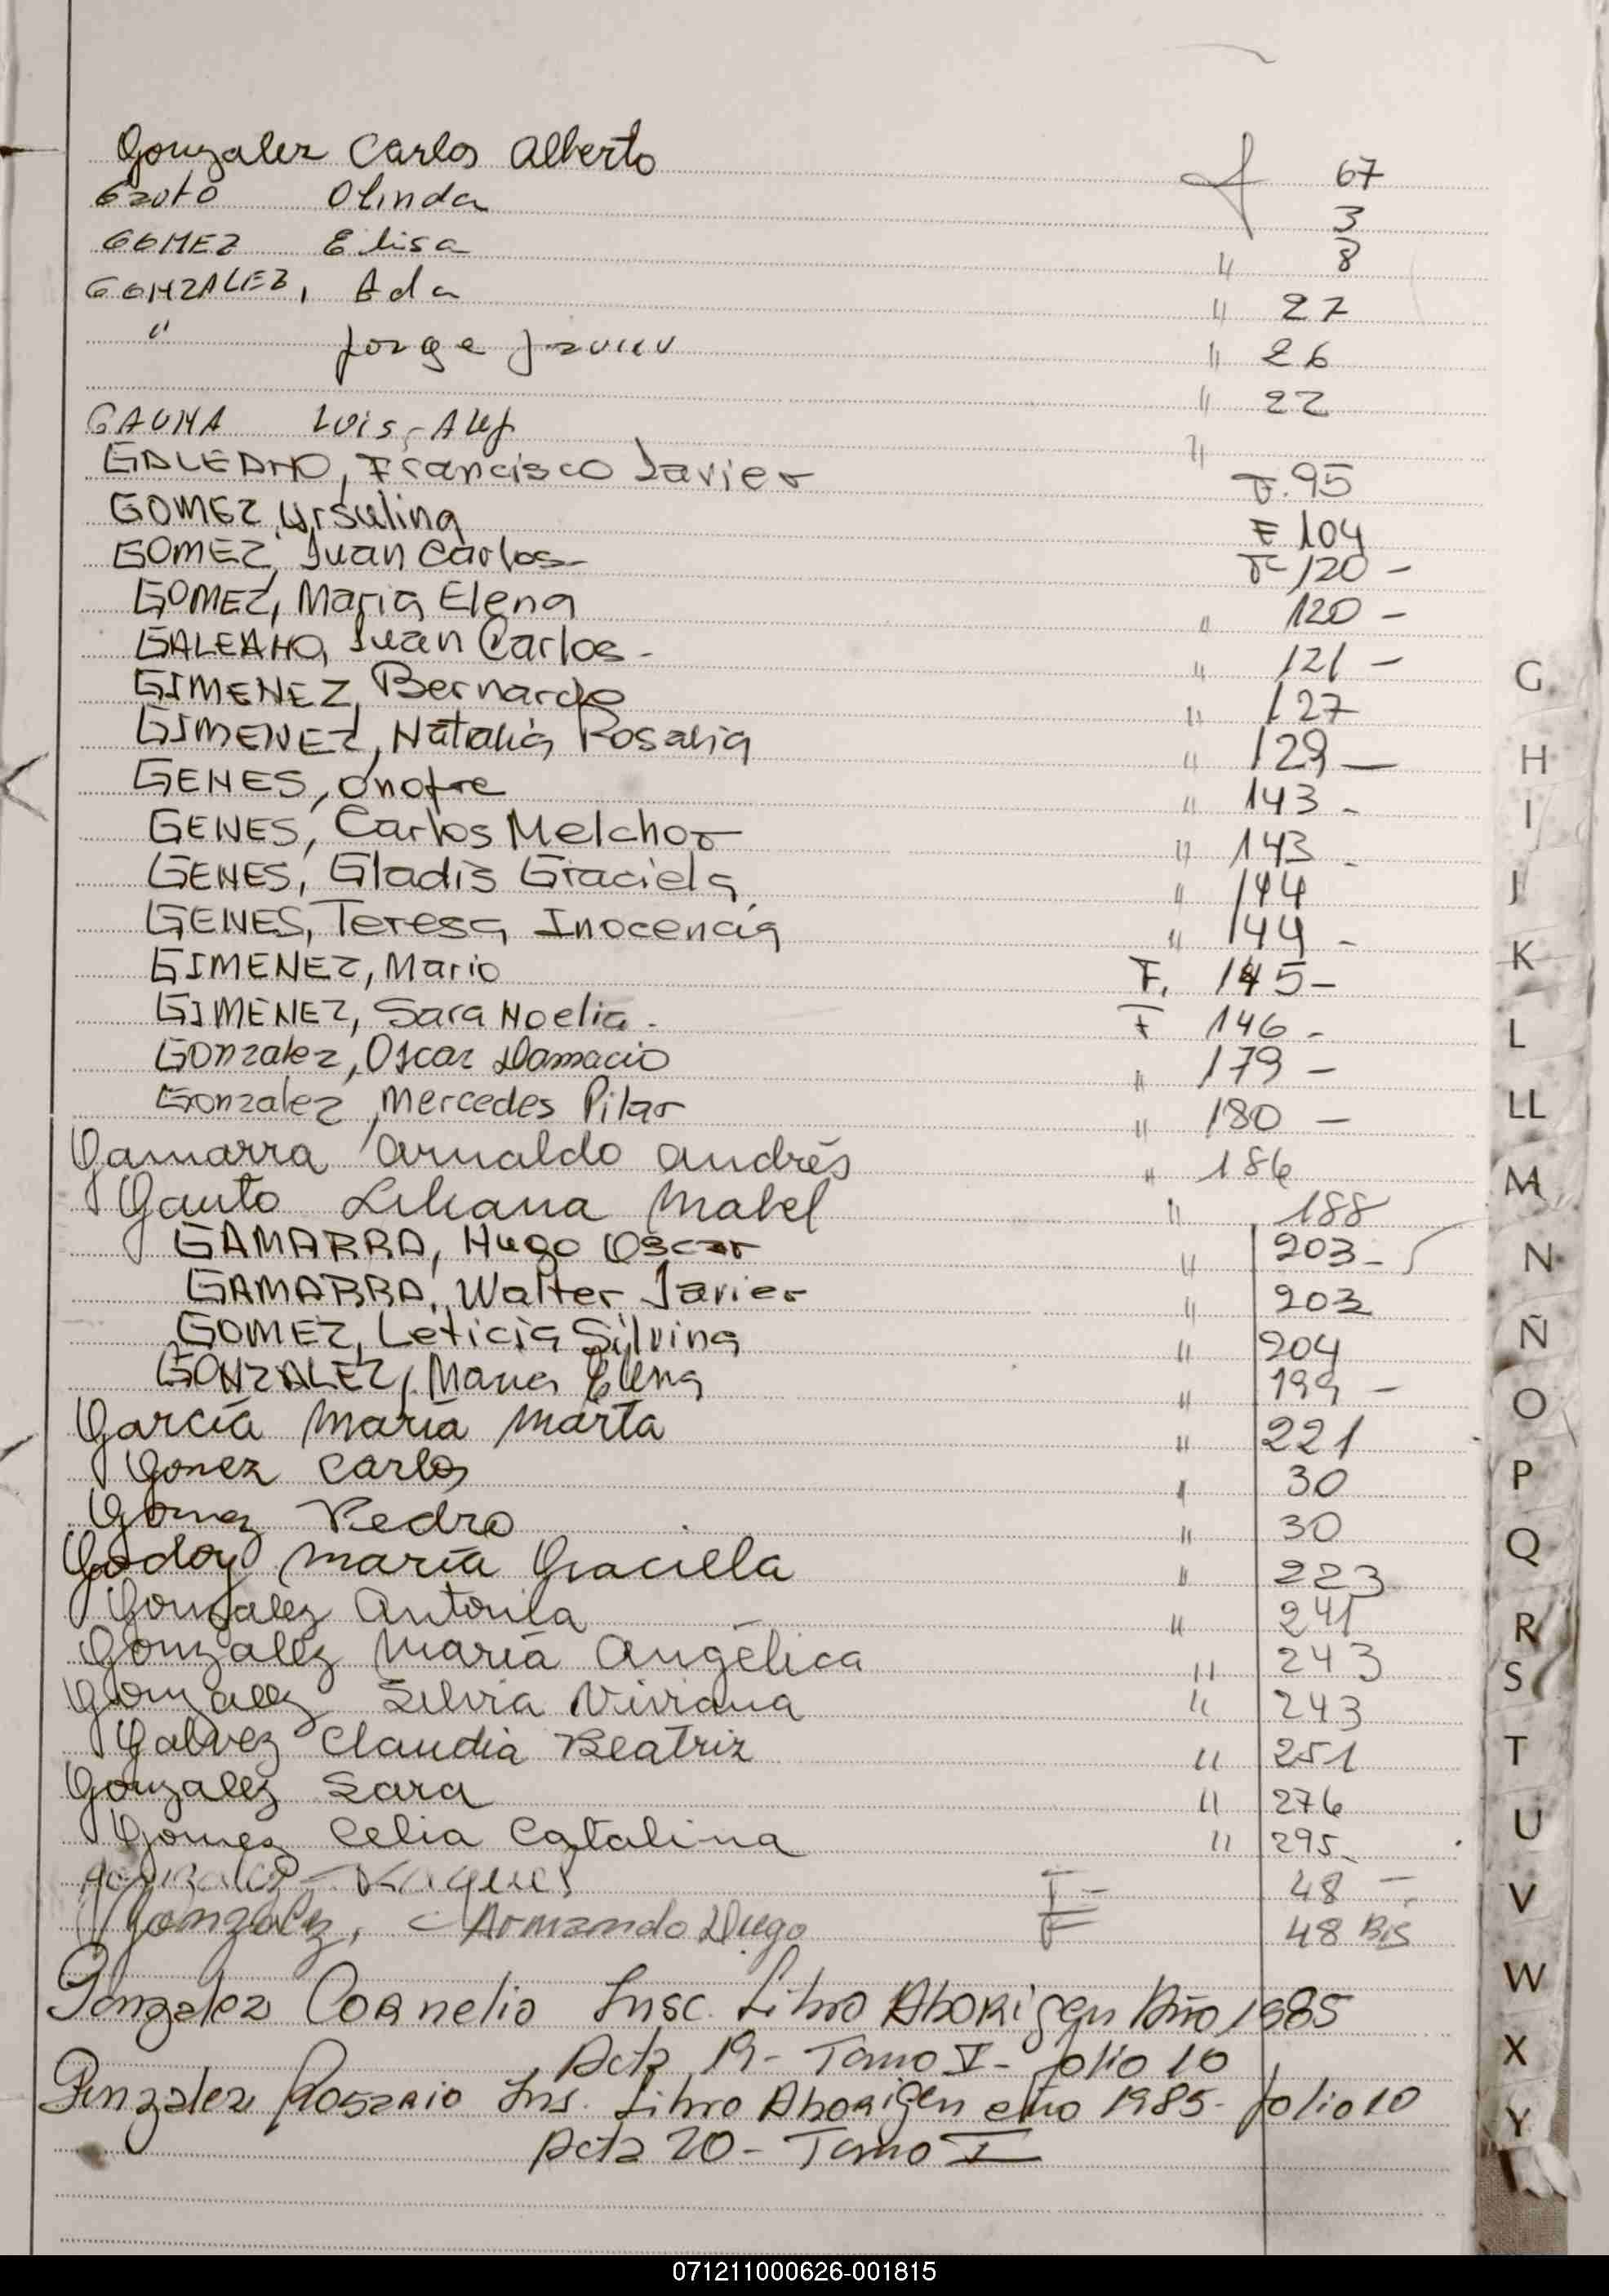 Gonzalez Carlos Alberto f 67
Olinda 3
GOMEZ Elisa " 8
GONZALEZ, Ada " 27
" Jorge Javier " 26
" 22
GAUNA Luis - Alej "
GALEANO, Francisco Javier F. 95
GOMEZ, Ursulina F 104
GOMEZ, Juan Carlos- F 120 -
GOMEZ, Maria Elena " 120 -
GALEANO, Juan Carlos - " 121 -
GIMENEZ, Bernardo " 127
GIMENEZ, Natalia Rosalia " 129 -
GENES, Onofre " 143 -
GENES, Carlos Melchor " 143 -
GENES, Gladis Graciela " 144
GENES, Teresa Inocencia " 144 -
GIMENEZ, Mario F. 145 -
GIMENEZ, Sara Noelia. F 146 -
Gonzalez, Oscar Damacio " 179 -
Gonzalez, Mercedes Pilar " 180 -
Gamarra Arnaldo Andrés " 186
Gauto Liliana Mabel " 188
GAMARRA, Hugo Oscar " 203 -
GAMARRA, Walter Javier " 203
GOMEZ, Leticia Silvina " 204
GONZALEZ, Maria Elena " 199 -
García María Marta " 221
Gomez Carlos " 30
Gomez Pedro " 30
Godoy María Graciela " 223
Gonzalez Antonia " 241
Gonzalez María Angélica " 243
Gonzalez Silvia Viviana " 243
Galvez Claudia Beatriz " 251
Gonzalez Sara " 276
Gómez Celia Catalina " 295-
Gonzalez - Raquel F - 48 -
Gonzalez, Armando Diego F 48 Bis
Gonzalez Cornelio Insc. Libro Aborigen Año 1985
Acta 19 - Tomo I - folio 10
Gonzalez Rosario Ins. Libro Aborigen año 1985 - folio 10
Acta 20 - Tomo I
G
H
I
J
K
L
LL
M
N
Ñ
O
P
Q
R
S
T
U
V
W
X
Y
071211000626-001815